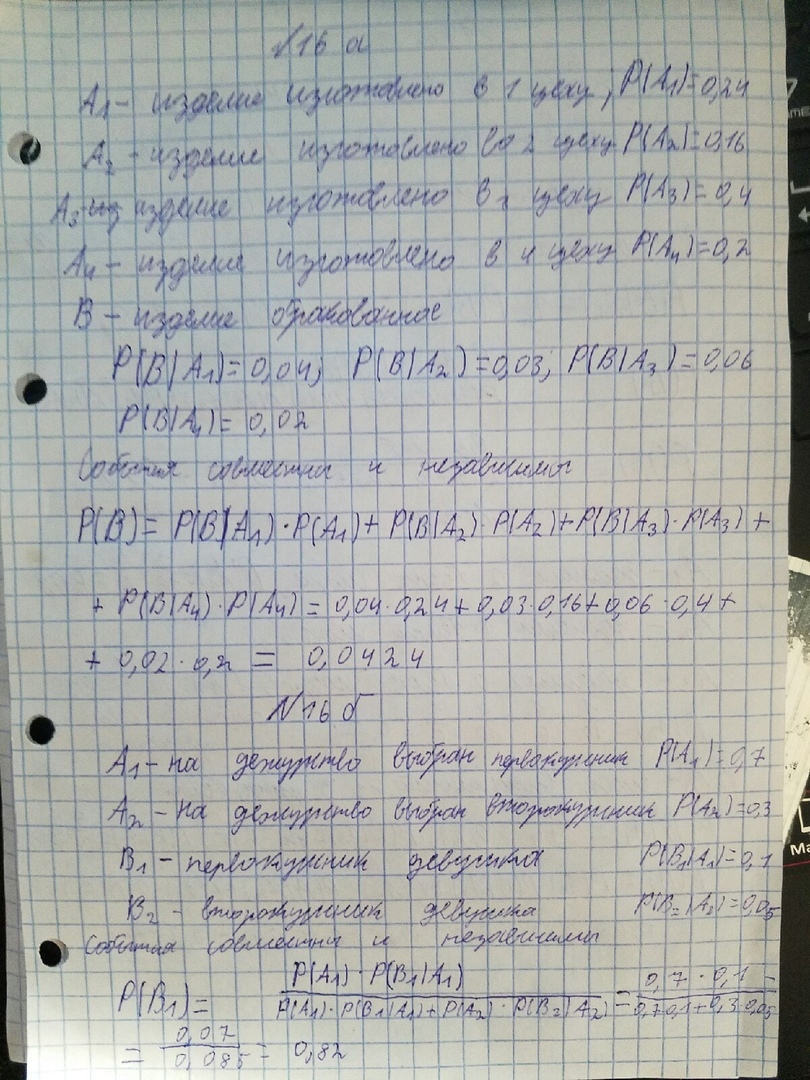 №16 а
A₁ – изделие изготовлено в 1 цеху; P(A₁)=0,24
A₂ – изделие изготовлено во 2 цеху P(A₂)=0,16
A₃ изделие изготовлено в 3 цеху P(A₃)=0,4
A₄ – изделие изготовлено в 4 цеху P(A₄)=0,2
B – изделие бракованное
P(B|A₁)=0,04; P(B|A₂)=0,03; P(B|A₃)=0,06
P(B|A₄)=0,02
События совместны и независимы
P(B)= P(B|A₁)·P(A₁)+ P(B|A₂)·P(A₂)+P(B|A₃)·P(A₃) +
+ P(B|A₄)·P(A₄)= 0,04·0,24+0,03·0,16+0,06·0,4+
+ 0,02·0,2 = 0,0424
№16 б
A₁ – на дежурство выбран первокурсник P(A₁)=0,7
A₂ – на дежурство выбран второкурсник P(A₂)=0,3
B₁ – первокурсник девушка P(B₁|A₁)=0,1
B₂ – второкурсник девушка P(B₂|A₂)=0,05
События совместны и независимы
P(B₁)= P(A₁)·P(B₁|A₁) / P(A₁)·P(B₁|A₁)+P(A₂)·P(B₂|A₂) = 0,7·0,1 / 0,7·0,1+0,3·0,05 =
= 0,07 / 0,085 = 0,82
Ma